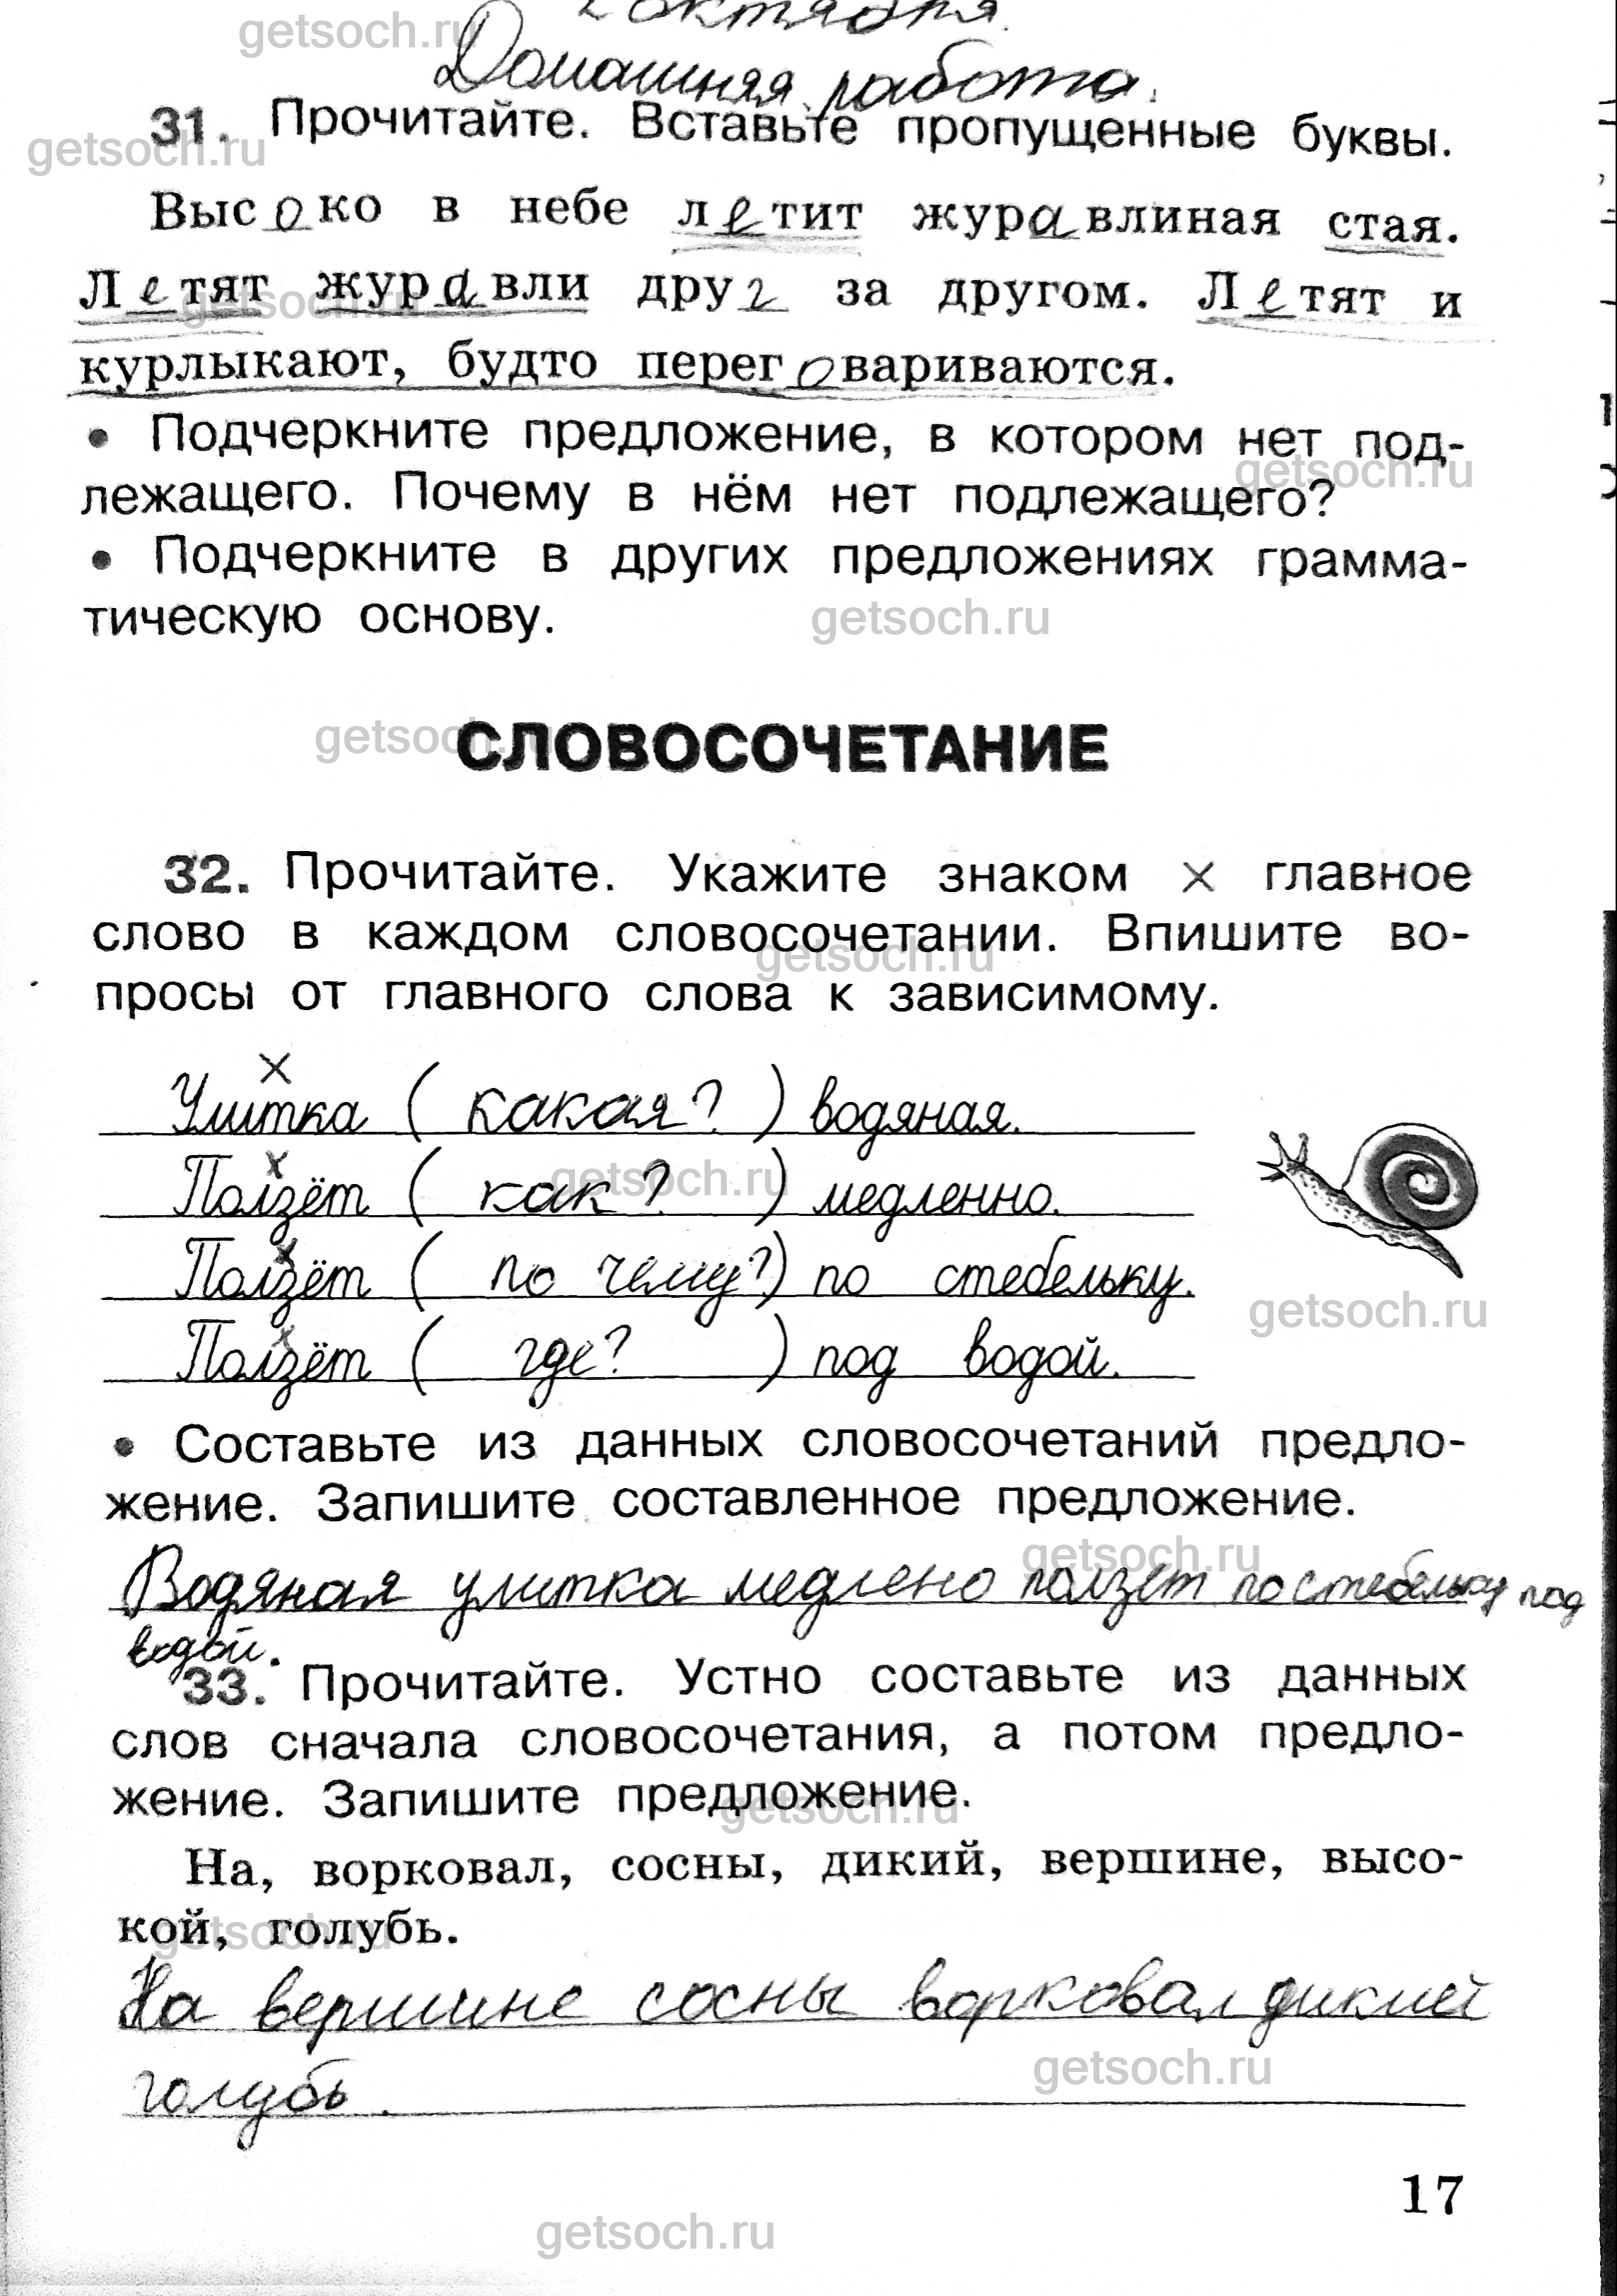 октября.
Домашняя работа.
31. Прочитайте. Вставьте пропущенные буквы.
Высоко в небе летит журавлиная стая.
Летят журавли друг за другом. Летят и
курлыкают, будто переговариваются.
• Подчеркните предложение, в котором нет под-
лежащего. Почему в нём нет подлежащего?
• Подчеркните в других предложениях грамма-
тическую основу.
СЛОВОСОЧЕТАНИЕ
32. Прочитайте. Укажите знаком × главное
слово в каждом словосочетании. Впишите во-
просы от главного слова к зависимому.
×
Улитка ( какая? ) водяная.
×
Ползёт ( как? ) медленно.
×
Ползёт ( по чему? ) по стебельку.
×
Ползёт ( где? ) под водой.
• Составьте из данных словосочетаний предло-
жение. Запишите составленное предложение.
Водяная улитка медлено ползёт по стебельку под
водой.
33. Прочитайте. Устно составьте из данных
слов сначала словосочетания, а потом предло-
жение. Запишите предложение.
На, ворковал, сосны, дикий, вершине, высо-
кой, голубь.
На вершине сосны ворковал дикией
голубь.
17
getsoch.ru
getsoch.ru
getsoch.ru
getsoch.ru
getsoch.ru
getsoch.ru
getsoch.ru
getsoch.ru
getsoch.ru
getsoch.ru
getsoch.ru
getsoch.ru
getsoch.ru
getsoch.ru